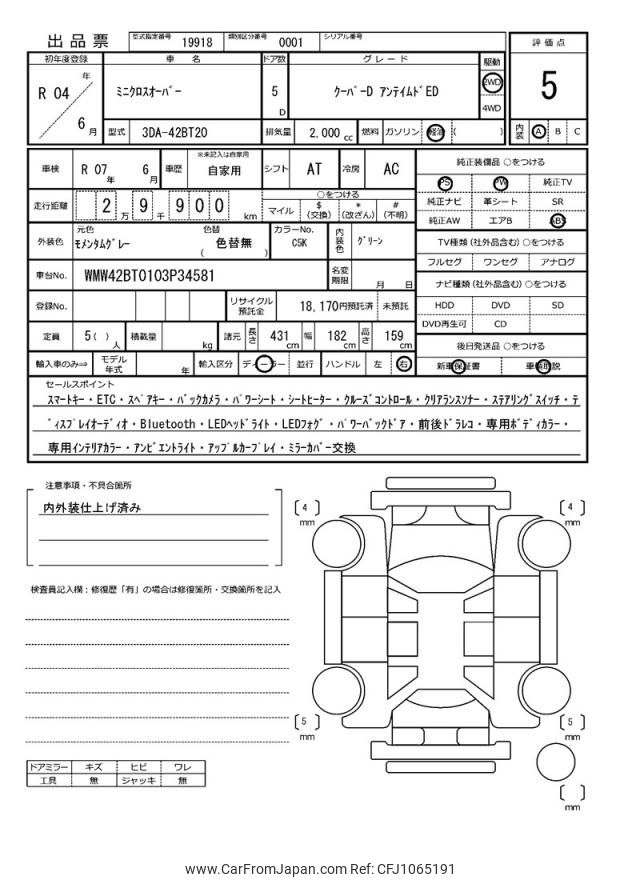 出品票
型式指定番号 19918 類別区分番号 0001 シリアル番号
初年度登録 車名 ドア数 グレード 駆動 評価点
R 04 年 6 月
ミニクロスオーバー 5 D クーパーD アンテイムドED 2WD 4WD 5
型式 3DA-42BT20 排気量 2,000 cc 燃料 ガソリン 軽油 ( ) 内装 A B C
車検 R 07 年 6 月 車歴 ※未記入は自家用 自家用 シフト AT 冷房 AC 純正装備品 ○をつける
PS PW 純正TV
走行距離 2 万 9 千 9 0 0 km ○をつける 純正ナビ 革シート SR
マイル $(交換) *(改ざん) #(不明) 純正AW エアB ABS
外装色 元色 モメンタムグレー 色替 ( 色替無 ) カラーNo. C5K 内装色 グリーン
TV種類 (社外品含む) ○をつける
フルセグ ワンセグ アナログ
車台No. WMW42BT0103P34581 名変期限 月 日
ナビ種類 (社外品含む) ○をつける
登録No. リサイクル預託金 18,170円預託済 未預託 HDD DVD SD
DVD再生可 CD
定員 5 ( ) 人 積載量 kg 諸元 長さ 431 cm 幅 182 cm 高さ 159 cm
後日発送品 ○をつける
輸入車のみ⇒ モデル年式 年 輸入区分 ディーラー 並行 ハンドル 左 右 新車保証書 車輌取説
セールスポイント
スマートキー・ETC・スペアキー・バックカメラ・パワーシート・シートヒーター・クルーズコントロール・クリアランスソナー・ステアリングスイッチ・デ
ィスプレイオーディオ・Bluetooth・LEDヘッドライト・LEDフォグ・パワーバックドア・前後ドラレコ・専用ボディカラー・
専用インテリアカラー・アンビエントライト・アップルカープレイ・ミラーカバー交換
注意事項・不具合箇所
内外装仕上げ済み
検査員記入欄：修復歴「有」の場合は修復箇所・交換箇所を記入
[ 4 ] mm [ 4 ] mm
[ 5 ] mm [ 5 ] mm
[ ] mm
ドアミラー キズ ヒビ ワレ
工具 無 ジャッキ 無
www.CarFromJapan.com Ref: CFJ1065191